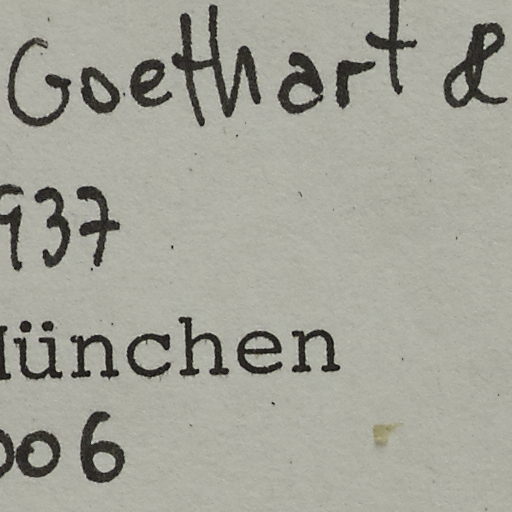 Goethart &
937
München
006